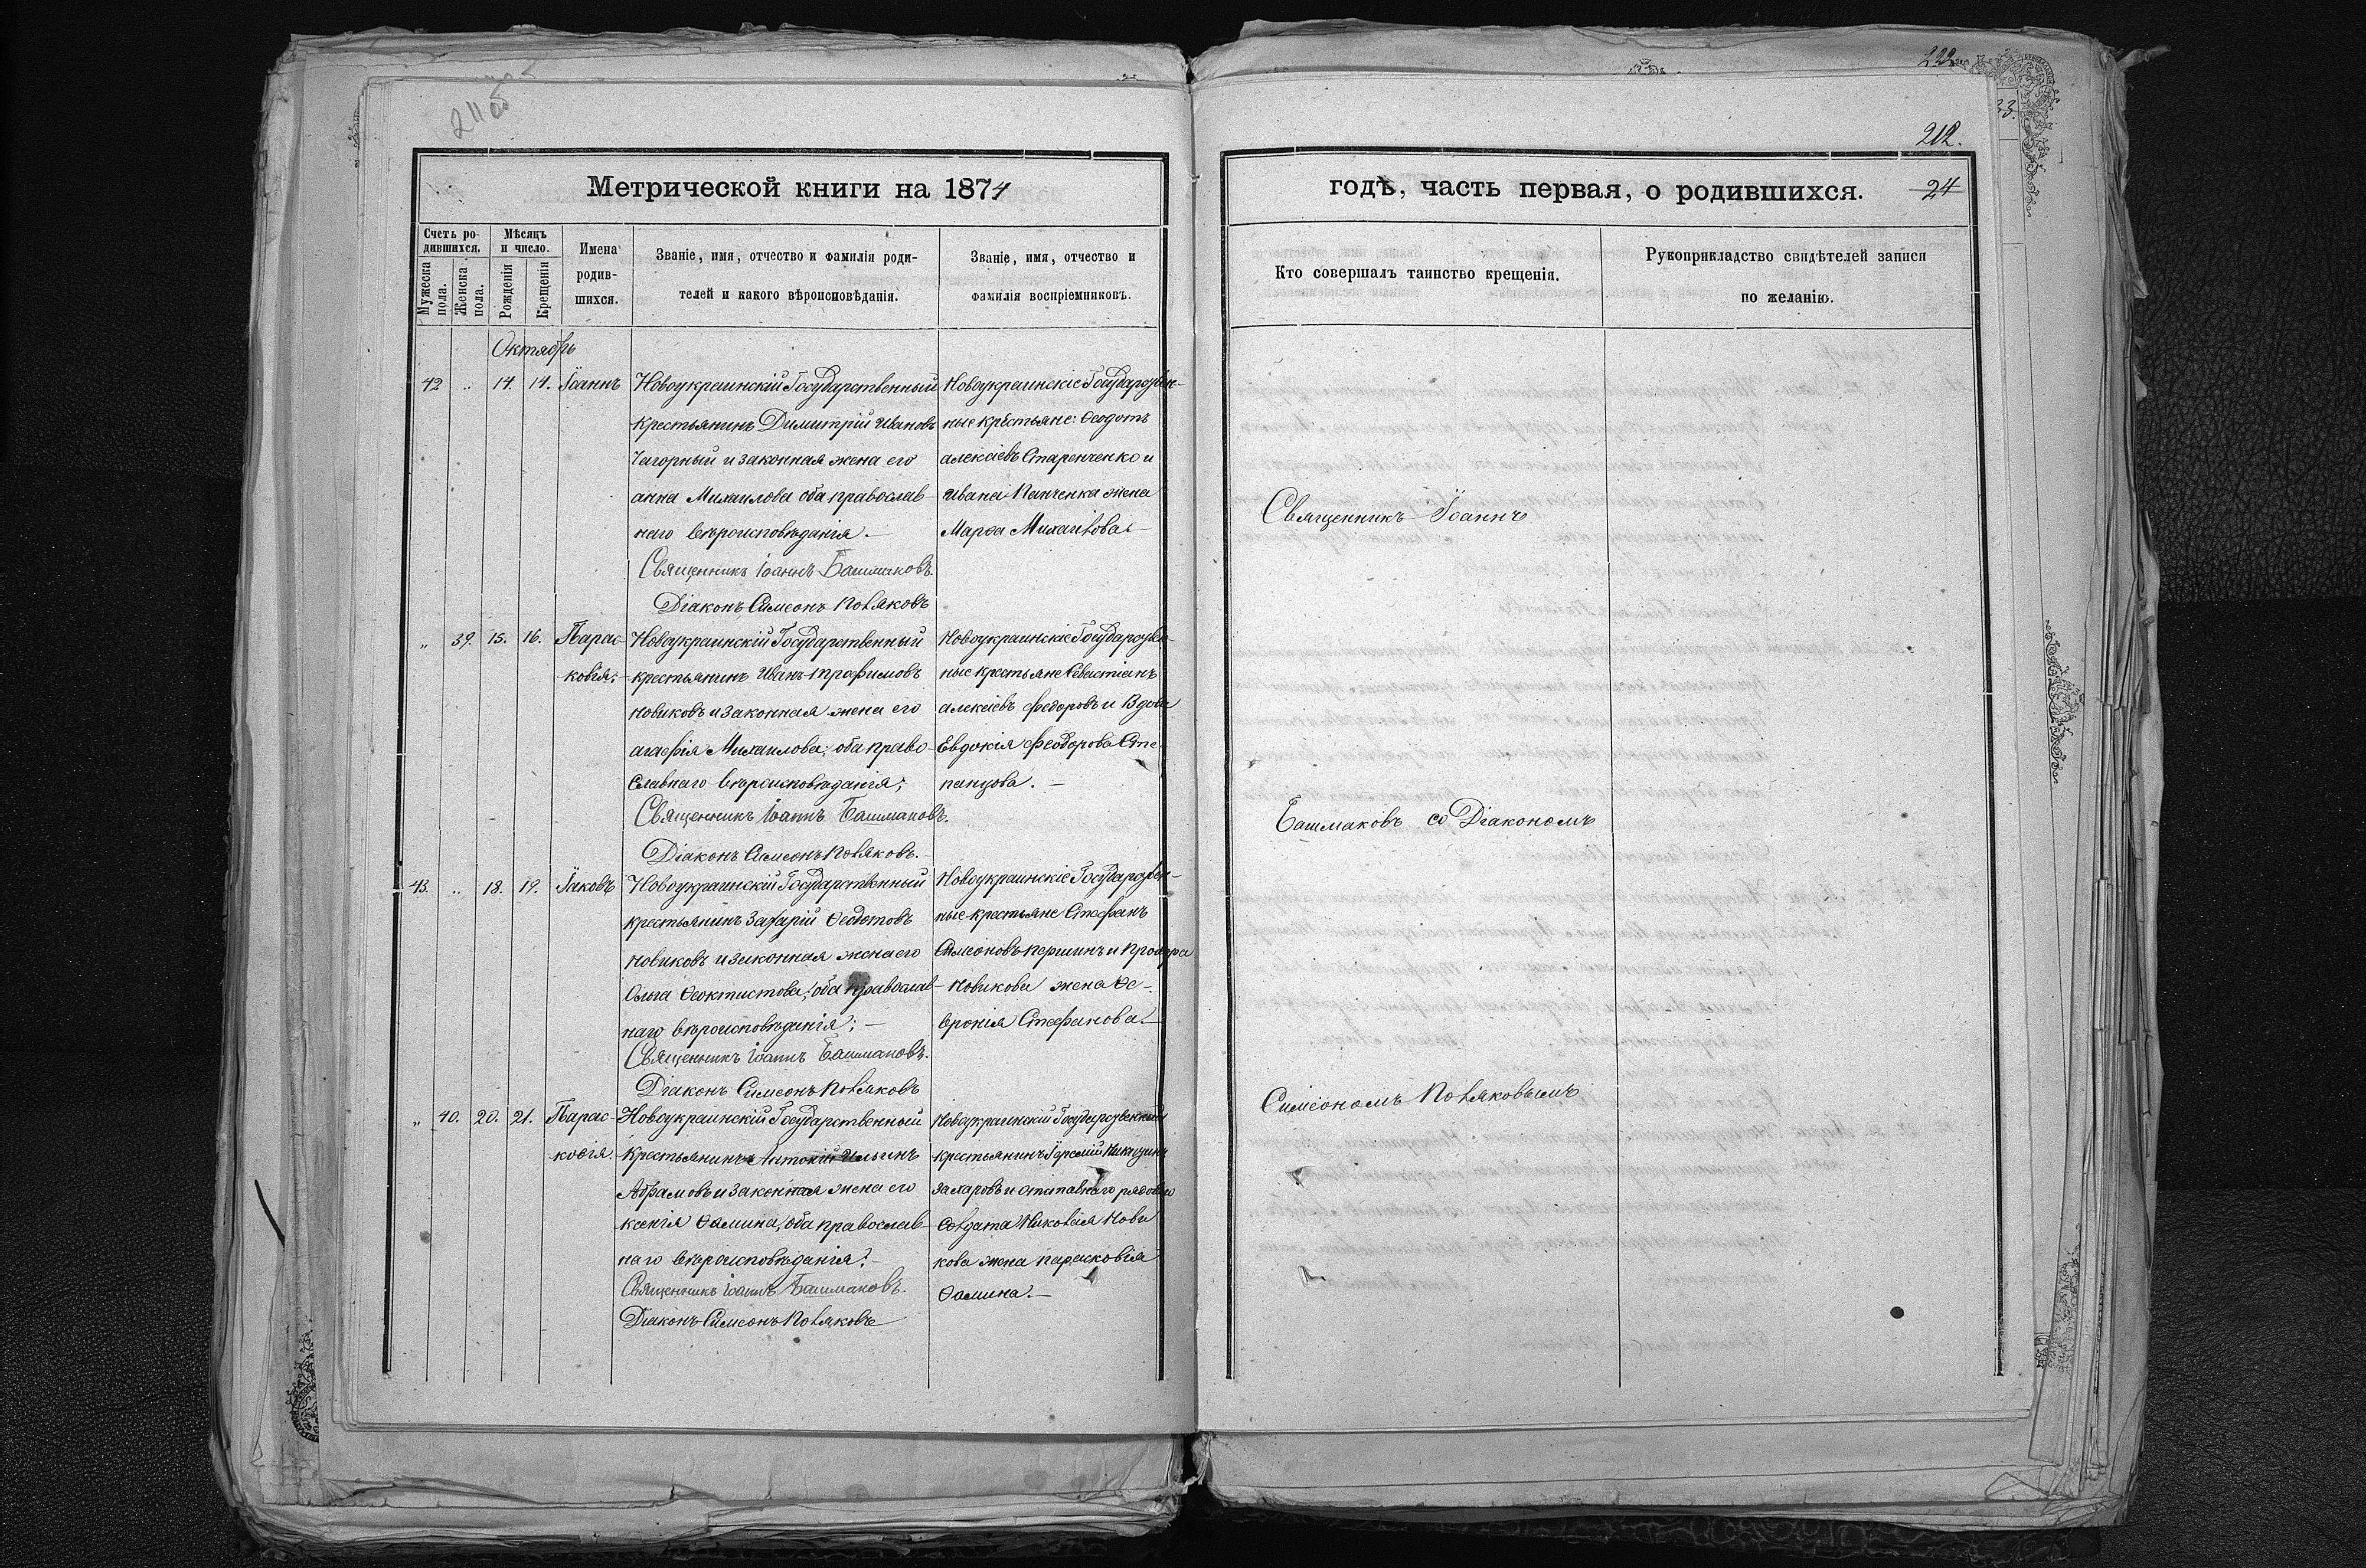 211 об
222
33.
212.
Метрической книги на 1874
годѣ, часть первая, о родившихся.
24
Счетъ ро-
дившихся.
Мужеска пола.
Женска пола.
Мѣсяцъ
и число.
Рожденія
Крещенія
Имена
родив-
шихся.
Званіе, имя, отчество и фамилія роди-
телей и какого вѣроисповѣданія.
Званіе, имя, отчество и
фамилія воспріемниковъ.
Кто совершалъ таинство крещенія.
Рукоприкладство свидѣтелей записи
по желанію.
Октябрь
42 „ 14. 14. Іоаннъ
Новоукраинскій Государственный
крестьянинъ Димитрій Ивановъ
Чагорный и законная жена его
анна Михаилова оба православ-
наго вѣроисповѣданія. —
Священникъ Іоаннъ Башмаковъ.
Діаконъ Симеонъ Поляковъ
Новоукраинскіе Государствен-
ные крестьяне: Ѳеодотъ
алексіевъ Старенченко и
Ивана Панченка жена
Марѳа Михаилова —
„ 39. 15. 16. Парас-
ковія.
Новоукраинскій Государственный
крестьянинъ Иванъ трофимовъ
новиковъ и законная жена его
агафія Михаилова; оба право-
славнаго вѣроисповѣданія;
Священникъ Іоаннъ Башмаковъ.
Діаконъ Симеонъ Поляковъ.
Новоукраинскіе Государствен-
ные крестьяне Севастіанъ
алексіевъ федоровъ и Вдова
Евдокія Феодорова Сте-
панцова. —
43. „ 18. 19. Іаковъ
Новоукраинскій Государственный
крестьянинъ Захарій Ѳедотовъ
новиковъ и законная жена его
Ольга Ѳеоктистова; оба православ-
наго вѣроисповѣданія; —
Священникъ Іоаннъ Башмаковъ.
Діаконъ Симеонъ Поляковъ
Новоукраинскіе Государствен-
ные крестьяне Стефанъ
Симеоновъ першинъ и
Новикова жена Ѳе-
вронія Стефанова —
„ 40. 20. 21. Парас-
ковія.
Новоукраинскій Государственный
Крестьянинъ Антоній Ильинъ
Абрамовъ и законная жена его
ксенія Ѳомина, оба православ-
наго вѣроисповѣданія. —
Священникъ Іоаннъ Башмаковъ.
Діаконъ Симеонъ Поляковъ
Новоукраинскій Государственный
крестьянинъ
захаровъ и отставнаго рядоваго
Солдата Николая Нови
кова жена парасковія
Ѳомина. —
Священникъ Іоаннъ
Башмаковъ со Діакономъ
Симеономъ Поляковымъ